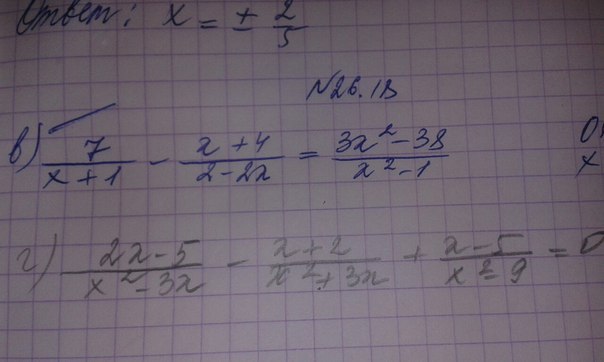 Ответ: x = ± 2/5
N26.18
в) 7/(x+1) - (x+4)/(2-2x) = (3x²-38)/(x²-1)
x
г) (2x-5)/(x²-3x) - (x+2)/(x²+3x) + (x-5)/(x²-9) = 0